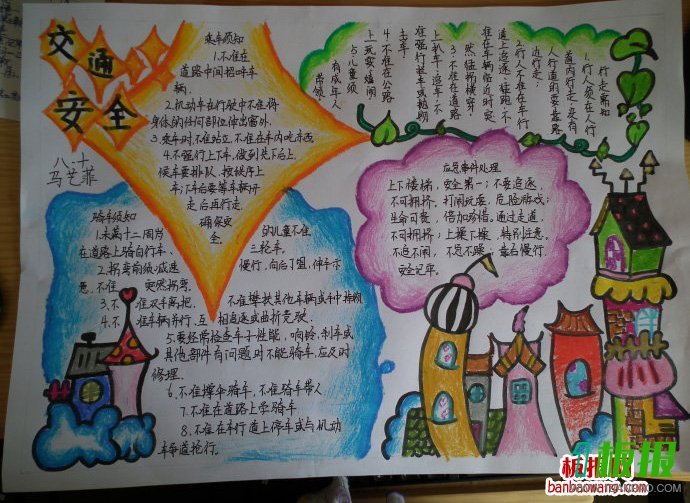 交通
安全
八·十
马艺菲
乘车须知
1.不准在
道路中间招呼车
辆.
2.机动车在行驶中不准将
身体的任何部位伸出窗外.
3.乘车时,不准站立,不准在车内吃东西.
4.不强行上下车,做到先下后上,
候车要排队,按秩序上
车;下车后要等车辆开
走后再行走,
确保安
全.
行走需知
1.行人须在人行
道内行走,没有
人行道的要靠路
边行走;
2.行人不准在车行
道上追逐、猛跑,不
准在车辆临近时突
然猛拐横穿;
3.不准在道路
上扒车、追车,不
准强行拦车或抛物
击车.
4.不准在公路
上玩耍嬉闹
5.儿童须
有成年人
带领
应急事件处理
上下楼梯,安全第一;不要追逐,
不可拥挤,打闹玩耍,危险游戏;
生命可贵,倍加珍惜,通过走道,
不可拥挤;上操下操,特别注意,
不追不闹,不急不躁,靠右慢行,
安全记牢.
骑车须知
1.未满十二周岁的儿童不准
在道路上骑自行车、三轮车.
2.拐弯前须减速慢行,向后了望,伸手示
意,不准突然拐弯.
3.不准双手离把,不准攀扶其他车辆或手中推物
4.不准车辆并行,互相追逐或曲折竞驶.
5.要经常检查车子性能,响铃、刹车或
其他部件有问题时不能骑车,应及时
修理.
6.不准撑伞骑车,不准骑车带人
7.不准在道路上学骑车
8.不准在车行道上停车或与机动
车争道抢行.
板报
banbaowang.com